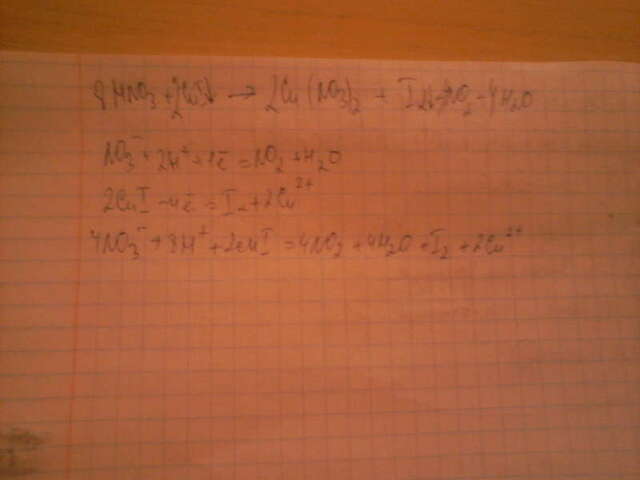 8 HNO3 + 2CuI↓ → 2Cu(NO3)2 + I2↓ + 4NO2 + 4H2O
NO3⁻ + 2H⁺ + 1ē = NO2 + H2O
2CuI - 4ē = I2 + 2Cu²⁺
4NO3⁻ + 8H⁺ + 2CuI = 4NO2 + 4H2O + I2 + 2Cu²⁺